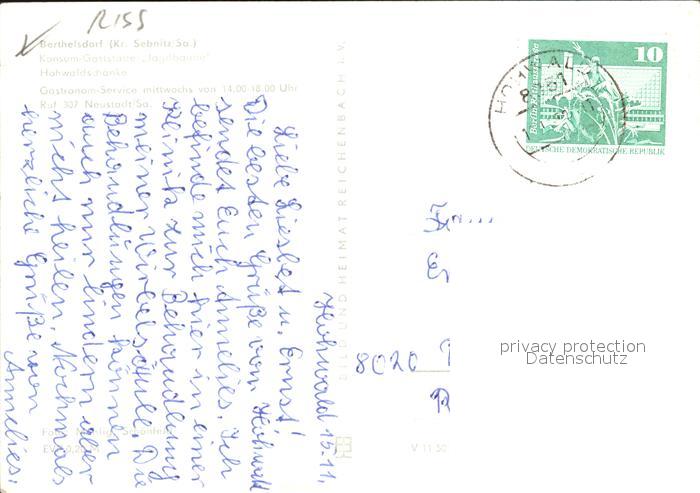 RISS
Berthelsdorf (Kr. Sebnitz/Sa.)
Konsum-Gaststätte „Jagdbaude“
Hohwaldschänke
Gastronom-Service mittwochs von 14.00-18.00 Uhr
Ruf 307 Neustadt/Sa.
Hohwald 15.11.
Liebe Liesbet u. Ernst!
Die besten Grüße vom Hohwald
sendet Euch Annelies. Ich
befinde mich hier in einer
Klinik zur Behandlung
meiner Wirbelsäule. Die
Behandlungen können
auch nur lindern aber
nicht heilen. Nochmals
herzliche Grüße von
Annelies.
BILD UND HEIMAT REICHENBACH I. V.
V 11 50
10
DEUTSCHE DEMOKRATISCHE REPUBLIK
8020
privacy protection
Datenschutz